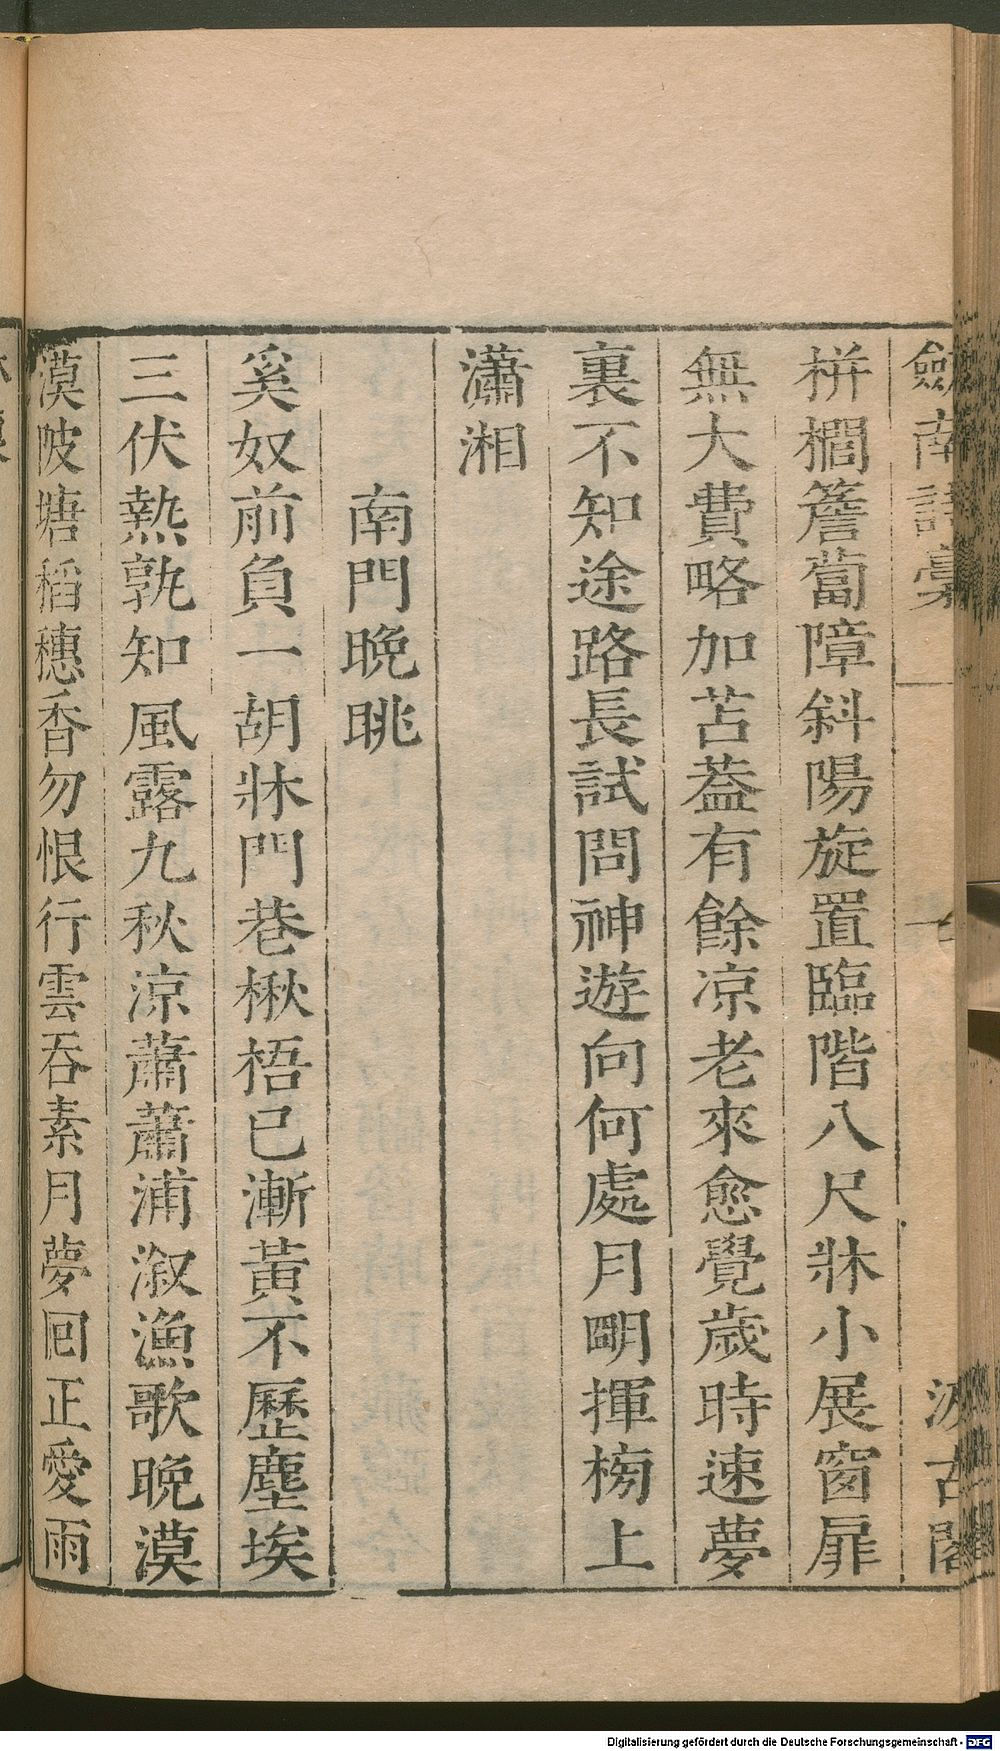 劔南詩稾 汲古閣
栟櫚簷蔔障斜陽旋置臨階八尺牀小展窗扉
無大費略加苫葢有餘凉老來愈覺歲時速夢
裏不知途路長試問神遊向何處月朙揮榜上
瀟湘
南門晚眺
奚奴前負一胡牀門巷楸梧已漸黃不歷塵埃
三伏熱孰知風露九秋涼蕭蕭浦漵漁歌晚漠
漠陂塘稻穗香勿恨行雲吞素月夢囘正愛雨
Digitalisierung gefördert durch die Deutsche Forschungsgemeinschaft - DFG